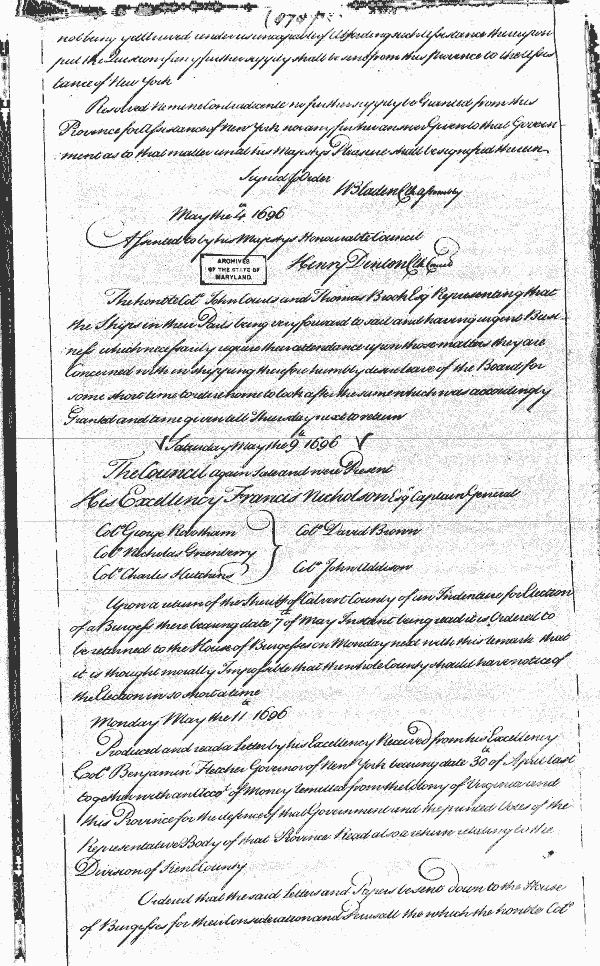 (874)
not being yett viewed under us incapable of affording such Assistance thereupon
put the Question if any further supply shall be sent from this Province to the Assis
tance of New York
Resolved Nemine Contradicente no further supply be Granted from this
Province for Assistance of New York nor any further answer Given to that Govern
ment as to that matter untill his Majestys Pleasure shall be signified therein
Signed p Order
W Bladen Clk Assembly
May the 4th 1696
Assented to by his Majestys Honourable Council
ARCHIVES
OF THE STATE OF
MARYLAND.
Henry Denton Clk Council
The honoble Colo John Courts and Thomas Brooke Esqr Representing that
the Ships in their Parts being very forward to sail and having urgent Busi-
ness which necessarily require their attendance upon those matters they are
Concerned with in shipping therefore humbly desire leave of the Board for
some short time to retire home to look after the same which was accordingly
Granted and time given till Thursday next to return
Saturday May the 9th 1696
The Council again Sate and were Present
His Excellency Francis Nicholson Esqr Captain General
Colo George Robotham
Colo David Brown
Colo Nicholas Greenberry
Colo Charles Hutchins
Colo John Addison
Upon a return of the Sheriff of Calvert County of an Indenture for Election
of a Burgess there bearing date 7th of May Instant being read it is Ordered to
be returned to the House of Burgesses on Monday next with this remark that
it is thought morally Impossible that the whole County should have notice of
the Election in so short a time
Monday May the 11th 1696
Produced and read a Letter by his Excellency Received from his Excellency
Colo Benjamin Fletcher Governor of New York bearing date 30th of April last
together with an Accot of Money remitted from the Colony of Virginia and
this Province for the defence of that Government and the printed Votes of the
Representative Body of that Province Read also a return relating to the
Division of Kent County
Ordered that the said letters and Papers be sent down to the House
of Burgesses for their Consideration and Perusall the which the honoble Colo